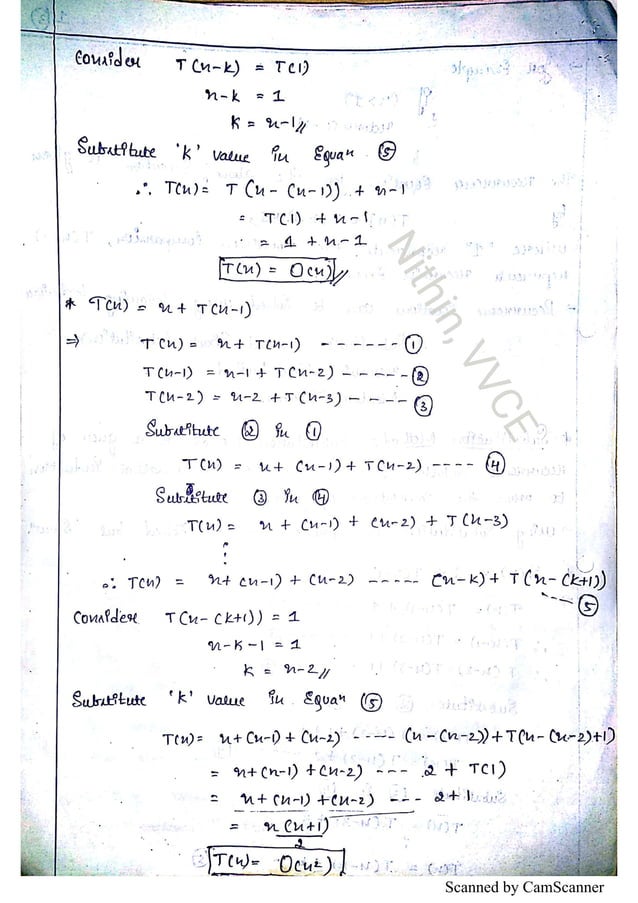 Consider T(n-k) = T(1)
n-k = 1
k = n-1//
Substitute 'k' value in Equan ⑤
∴ T(n) = T(n - (n-1)) + n-1
= T(1) + n-1
= 1 + n-1
T(n) = O(n)//
* T(n) = n + T(n-1)
⇒ T(n) = n + T(n-1) ------ ①
T(n-1) = n-1 + T(n-2) ----- ②
T(n-2) = n-2 + T(n-3) ----- ③
Substitute ② in ①
T(n) = n + (n-1) + T(n-2) ---- ④
Substitute ③ in ④
T(n) = n + (n-1) + (n-2) + T(n-3)
⋮
∴ T(n) = n + (n-1) + (n-2) ----- (n-k) + T(n-(k+1))
---- ⑤
Consider T(n-(k+1)) = 1
n-k-1 = 1
k = n-2//
Substitute 'k' value in Equan ⑤
T(n) = n + (n-1) + (n-2) ----- (n-(n-2)) + T(n-(n-2)+1)
= n + (n-1) + (n-2) --- 2 + T(1)
= n + (n-1) + (n-2) --- 2+1
= n(n+1)/2
T(n) = O(n²)
Nithin, VVCE
Scanned by CamScanner